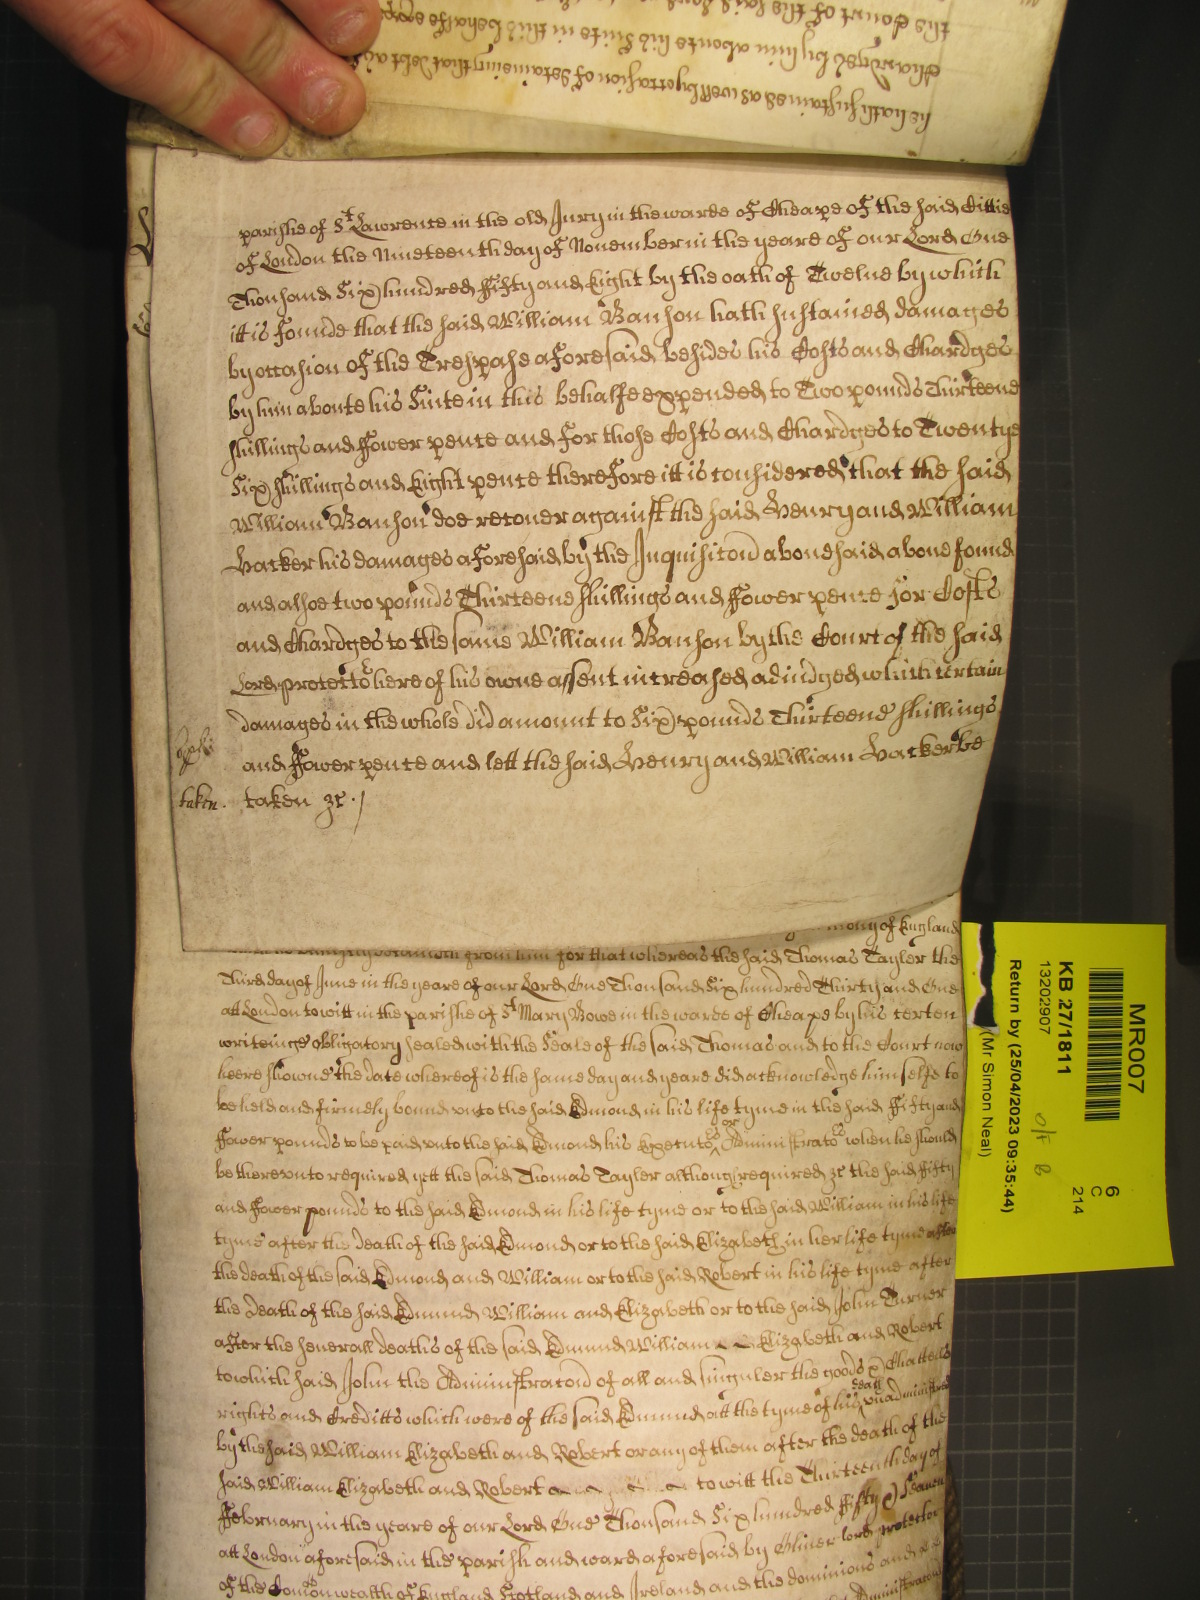 he hath sustained as well by occasion of detaineing that debt as
Chardges by him aboute his Suite in this behalfe
the Court of the said
parishe of St Lawrence in the old Jury in the warde of Cheape of the said Cittie
of London the Nineteenth day of November in the yeare of our Lord One
Thousand Six hundred Fifty and Eight by the oath of Twelve by which
itt is founde that the said William Banson hath sustained damages
by occasion of the Trespase aforesaid besides his Costs and Chardges
by him aboute his Suite in this behalfe expended to Two pounds Thirteene
shillings and Fower pence and for those Costs and Chardges to Twentye
Six shillings and Eight pence therefore itt is considered that the said
William Banson doe recover against the said Henry and William
Hacker his damages aforesaid by the Inquisicon abovesaid above found
and alsoe two pounds Thirteene shillings and Fower pence for Costs
and Chardges to the same William Banson by the Court of the said
Lord protector here of his owne assent increased adiudged which certain
damages in the whole did amount to Six pounds Thirteene shillings
and Fower pence and lett the said Henry and William Hacker be
taken. taken &c.
of England
from him for that whereas the said Thomas Tayler the
Third day of June in the yeare of our Lord One Thousand Six hundred Thirty and One
att London to witt in the parishe of St Mary Bowe in the warde of Cheape by his certen
writeinge obligatory sealed with the Seale of the said Thomas and to the Court now
heere showne the date whereof is the same day and yeare did acknowledge himselfe to
be held and firmely bound unto the said Edmond in his life tyme in the said Fifty and
Fower pounds to be paid unto the said Edmond his Executors or Administrators when he should
be thereunto required yett the said Thomas Tayler although required &c the said Fifty
and Fower pounds to the said Edmond in his life tyme or to the said William in his life
tyme after the death of the said Edmond or to the said Elizabeth in her life tyme after
the death of the said Edmond and William or to the said Robert in his life tyme after
the death of the said Edmund William and Elizabeth or to the said John Turner
after the severall deaths of the said Edmund William Elizabeth and Robert
to which said John the Administracon of all and singuler the goods & Chattells
rights and Creditts which were of the said Edmund att the tyme of his death unadministred
by the said William Elizabeth and Robert or any of them after the death of the
said William Elizabeth and Robert to witt the Thirteenth day of
February in the yeare of our Lord One Thousand Six hundred Fifty & Seaven
att London aforesaid in the parish and ward aforesaid by Oliver lord protector
of the Comonwealth of England Scotland and Ireland and the dominions and
MR007
6
C
214
KB 27/1811
13202907
o/f B
Return by (25/04/2023 09:35:44)
(Mr Simon Neal)